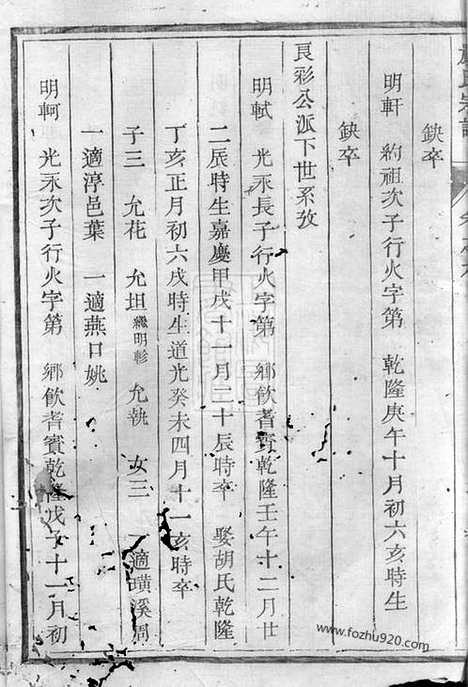 缺卒
明軒 約祖次子行火字第 乾隆庚午十月初六亥時生
缺卒
良彩公派下世系攷
明軾 光永長子行火字第 鄉飲耆賓乾隆壬午十二月廿
二辰時生嘉慶甲戌十一月二十辰時卒 娶胡氏乾隆
丁亥正月初六戌時生道光癸未四月十一亥時卒
子三 允花 允坦繼明軫 允執 女三 一適璜溪周
一適淳邑葉 一適燕口姚
明軻 光永次子行火字第 鄉飲耆賓乾隆戊子十一月初
www.fozhu920.com